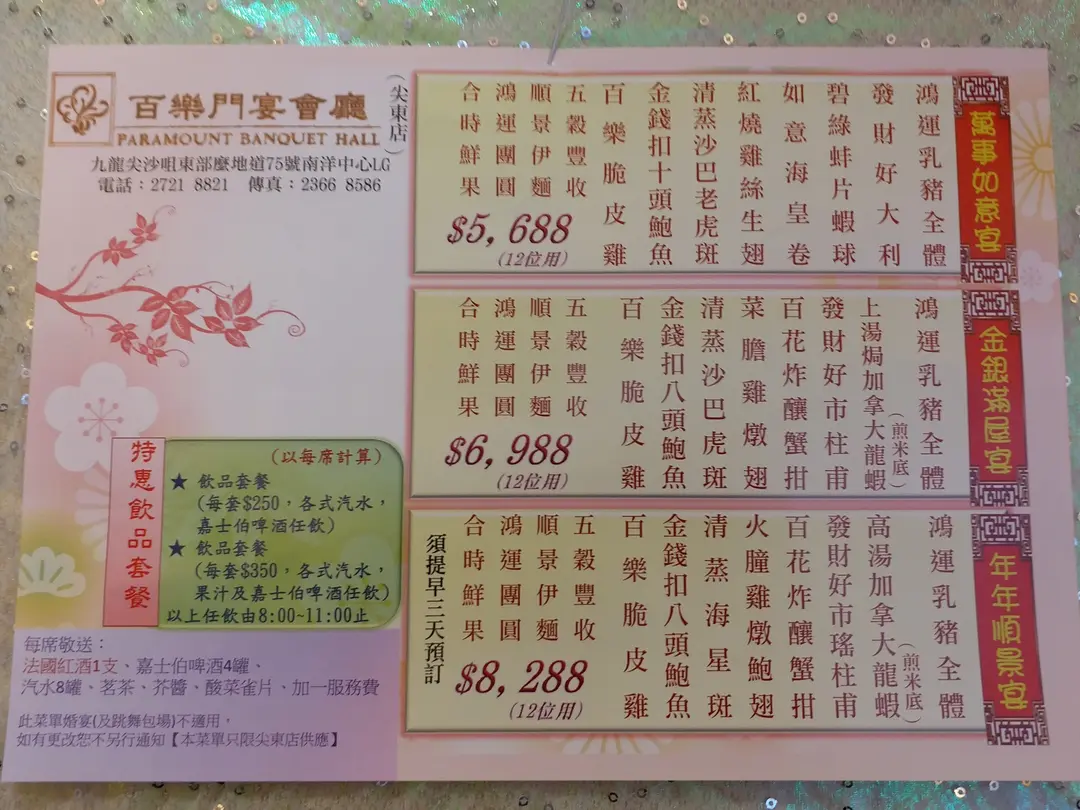 百樂門宴會廳
(尖東店)
PARAMOUNT BANQUET HALL
九龍尖沙咀東部麼地道75號南洋中心LG
電話：2721 8821　傳真：2366 8586
萬事如意宴
鴻運乳豬全體
發財好大利
碧綠蚌片蝦球
如意海皇卷
紅燒雞絲生翅
清蒸沙巴老虎斑
金錢扣十頭鮑魚
百樂脆皮雞
五穀豐收
順景伊麵
鴻運團圓
合時鮮果
$5,688
(12位用)
金銀滿屋宴
鴻運乳豬全體
上湯焗加拿大龍蝦(煎米底)
發財好市柱甫
百花炸釀蟹拑
菜膽雞燉翅
清蒸沙巴虎斑
金錢扣八頭鮑魚
百樂脆皮雞
五穀豐收
順景伊麵
鴻運團圓
合時鮮果
$6,988
(12位用)
年年順景宴
鴻運乳豬全體
高湯加拿大龍蝦(煎米底)
發財好市瑤柱甫
百花炸釀蟹拑
火朣雞燉鮑翅
清蒸海星斑
金錢扣八頭鮑魚
百樂脆皮雞
五穀豐收
順景伊麵
鴻運團圓
合時鮮果
須提早三天預訂
$8,288
(12位用)
特惠飲品套餐
(以每席計算)
★ 飲品套餐
(每套$250，各式汽水，
嘉士伯啤酒任飲)
★ 飲品套餐
(每套$350，各式汽水，
果汁及嘉士伯啤酒任飲)
以上任飲由8:00~11:00止
每席敬送：
法國紅酒1支、嘉士伯啤酒4罐、
汽水8罐、茗茶、芥醬、酸菜雀片、加一服務費
此菜單婚宴(及跳舞包場)不適用，
如有更改恕不另行通知【本菜單只限尖東店供應】